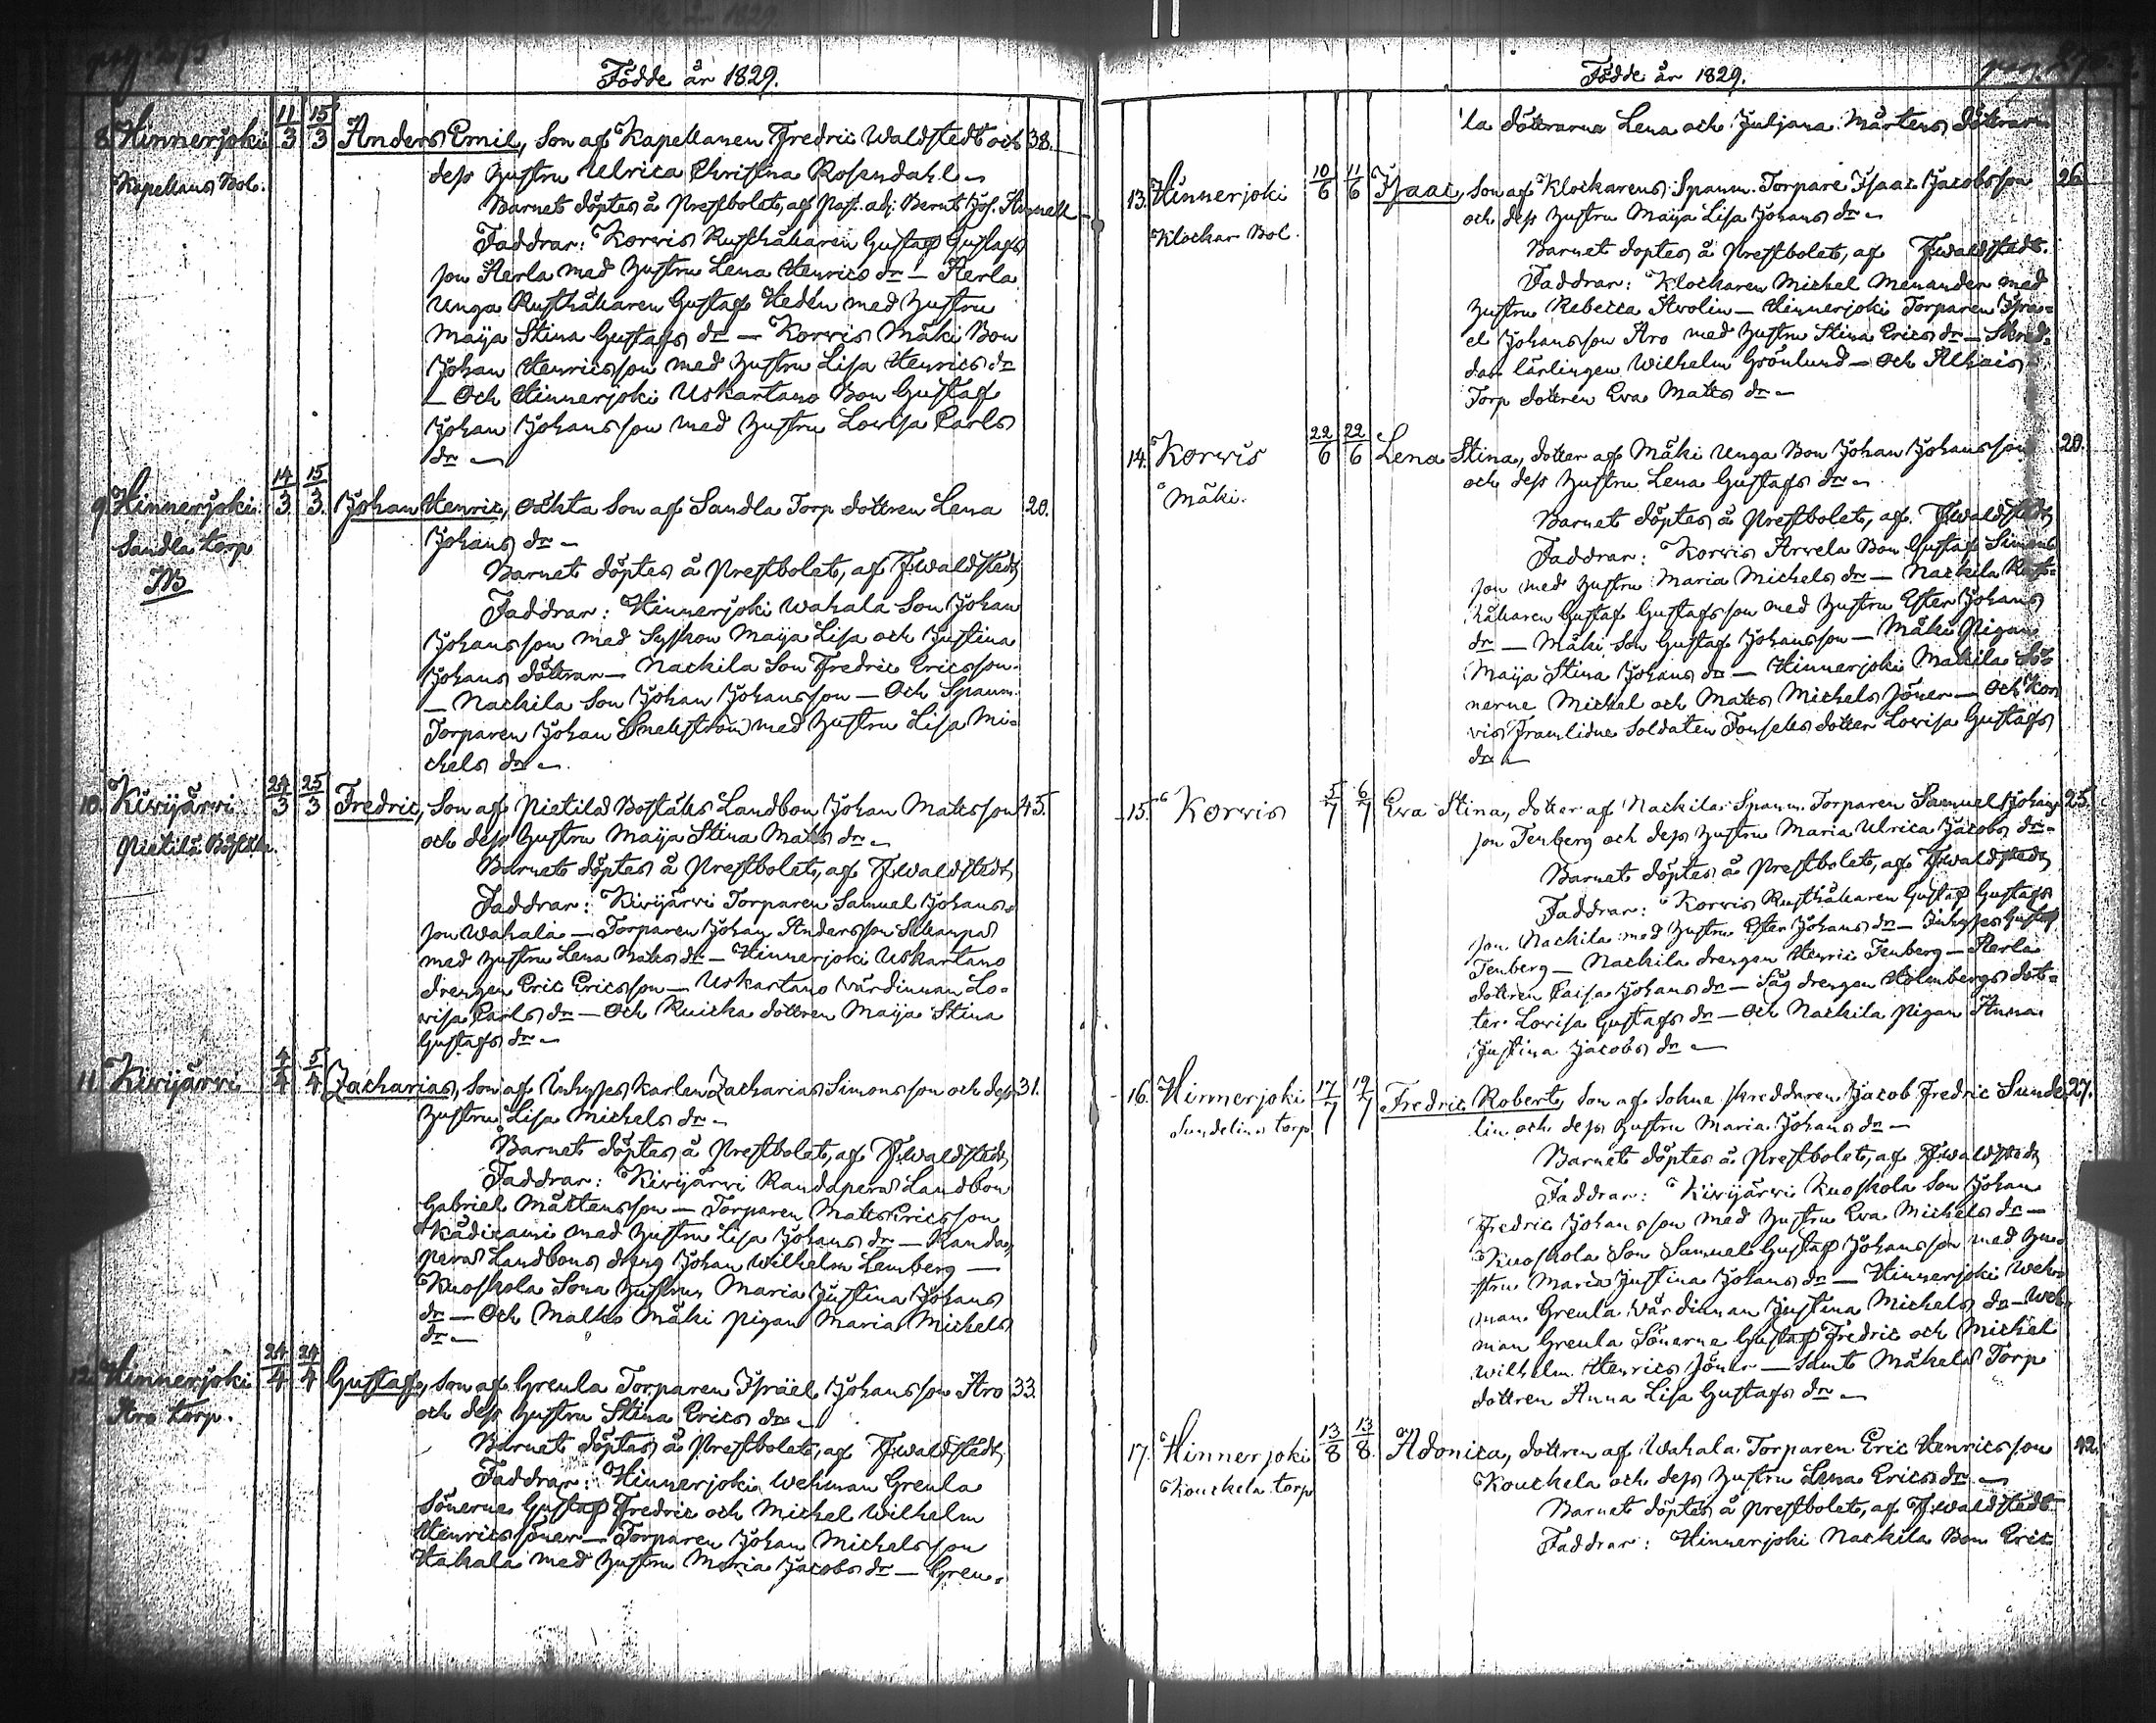 Födde år 1829.
8. Hinnerjoki 11/3 15/3 Anders Emil, Son af Kapellanen Fredric Waldstedt och 38.
Kapellans Bol. dess Hustru Ulrica Christina Rosendahl.
Barnet döptes å Prestbolet, af Past. adj. Bernt Jos.
Faddrar: Korvis Rusthållaren Gustaf Gustafs
son Aerla med Hustru Lena Henrics dr — Aerla
Unga Rusthållaren Gustaf Hedén med Hustru
Maija Stina Gustafs dr — Korvis Mäki Bon
Johan Henricsson med Hustru Lisa Henrics dr
— Och Hinnerjoki Uskartano Bon Gustaf
Johan Johansson med Hustru Lovisa Carls
dr —
9. Hinnerjoki 14/3 15/3 Johan Henric, oächta Son af Sandla Torp dottren Lena 20.
Sandla torp Johans dr —
Barnet döptes å Prestbolet, af F. Waldstedt
Faddrar: Hinnerjoki Wahala Son Johan
Johansson med Syskon Maija Lisa och Justina
Johans döttrar — Nackila Son Fredric Ericsson
— Nackila Son Johan Johansson — Och Spanm.
Torparen Johan Snellström med Hustru Lisa Mi-
chels dr —
10. Kivijärvi 24/3 25/3 Fredric, Son af Pietilä Boställs Landbon Johan Mattsson 45.
Pietilä Boställe och dess Hustru Maija Stina Matts dr —
Barnet döptes å Prestbolet, af F. Waldstedt
Faddrar: Kivijärvi Torparen Samuel Johans-
son Wahala — Torparen Johan Andersson
med Hustru Lena Matts dr — Hinnerjoki Uskartano
drengen Eric Ericsson — Uskartano Wärdinnan Lo-
visa Carls dr — Och Kuicka dottren Maija Stina
Gustafs dr —
11. Kivijärvi 4/4 5/4 Zacharias, Son af Inhyses Karlen Zacharias Simonsson och dess 31.
Hustru Lisa Michels dr —
Barnet döptes å Prestbolet, af F. Waldstedt
Faddrar: Kivijärvi Randaperä Landbon
Gabriel Mårtensson — Torparen Matts Ericsson
med Hustru Lisa Johans dr — Randa-
perä Landbons dreng Johan Wilhelm Lemberg —
Kuoskola Sona Hustrun Maria Justina Johans
dr — Och Malko Mäki pigan Maria Michels
dr —
12. Hinnerjoki 24/4 24/4 Gustaf, Son af Greula Torparen Israël Johansson Aro 33.
Aro torp. och dess Hustru Stina Erics dr —
Barnet döptes å Prestbolet, af F. Waldstedt
Faddrar: Hinnerjoki Wehman Greula
Sönerne Gustaf Fredric och Michel Wilhelm
Henricssöner — Torparen Johan Michelsson
Hakala med Hustru Maria Jacobs dr — Greu-
Födde år 1829.
la döttrarna Lena och Juljana Mårtens döttrarne
13. Hinnerjoki 10/6 11/6 Isaac, Son af Klockarens Spanm. Torpare Isaac Jacobsson 26.
och dess Hustru Maija Lisa Johans dr —
Klockar Bol. Barnet döptes å Prestbolet, af F. Waldstedt.
Faddrar: Klockaren Michel Menander med
Hustru Rebecca Avolin — Hinnerjoki Torparen Isra-
el Johansson Aro med Hustru Stina Erics dr — Skred-
dar lärlingen Wilhelm Grönlund — Och Alhais
Torp dottren Eva Matts dr —
14. Korvis 22/6 22/6 Lena Stina, dotter af Mäki Unga Bon Johan Johansson 20.
Mäki. och dess Hustru Lena Gustafs dr —
Barnet döptes å Prestbolet, af F. Waldstedt
Faddrar: Korvis Arvela Bon Gustaf Simons
son med Hustru Maria Michels dr — Nackila Rust-
hållaren Gustaf Gustafsson med Hustru Ester Johans
dr — Mäki Son Gustaf Johansson — Mäki Pigan
Maija Stina Johans dr — Hinnerjoki Makila Sö-
nerne Michel och Matts Michels Söner — Och Kor
vis Framlidne Soldaten dotter Lovisa Gustafs
dr —
15. Korvis 5/7 6/7 Eva Stina, dotter af Nackila Spanm. Torparen Samuel Johans 25.
son Tenberg och dess Hustru Maria Ulrica Jacobs dr —
Barnet döptes å Prestbolet, af F. Waldstedt
Faddrar: Korvis Rusthållaren Gustaf Gustafs
son Nackila med Hustru Ester Johans dr — Inhyses Gustaf
Tenberg — Nackila drengen Henric Tenberg — Aerla
dottren Caisa Johans dr — Såg drengen Holmbergs dot-
ter Lovisa Gustafs dr — Och Nackila pigan Anna
Justina Jacobs dr —
16. Hinnerjoki 17/7 19/7 Fredric Robert, Son af Sokne skreddaren Jacob Fredric Sunde- 27.
Sundelins torp lin och dess Hustru Maria Johans dr —
Barnet döptes å Prestbolet, af F. Waldstedt
Faddrar: Kivijärvi Kuoskola Son Johan
Fredric Johansson med Hustru Eva Michels dr —
Kuoskola Son Samuel Gustaf Johansson med Hu-
stru Maria Justina Johans dr — Hinnerjoki Weh-
man Greula Wärdinnan Justina Michels dr — Weh-
man Greula Sönerne Gustaf Fredric och Michel
Wilhelm Henrics Söner — Samt Mäkelä Torp
dottren Anna Lisa Gustafs dr —
17. Hinnerjoki 13/8 13/8 Adonica, dottren af Wahala Torparen Eric Henricsson 42.
Kouckela torp Kouckela och dess Hustru Lena Erics dr —
Barnet döptes å Prestbolet, af F. Waldstedt
Faddrar: Hinnerjoki Nackila Bon Eric